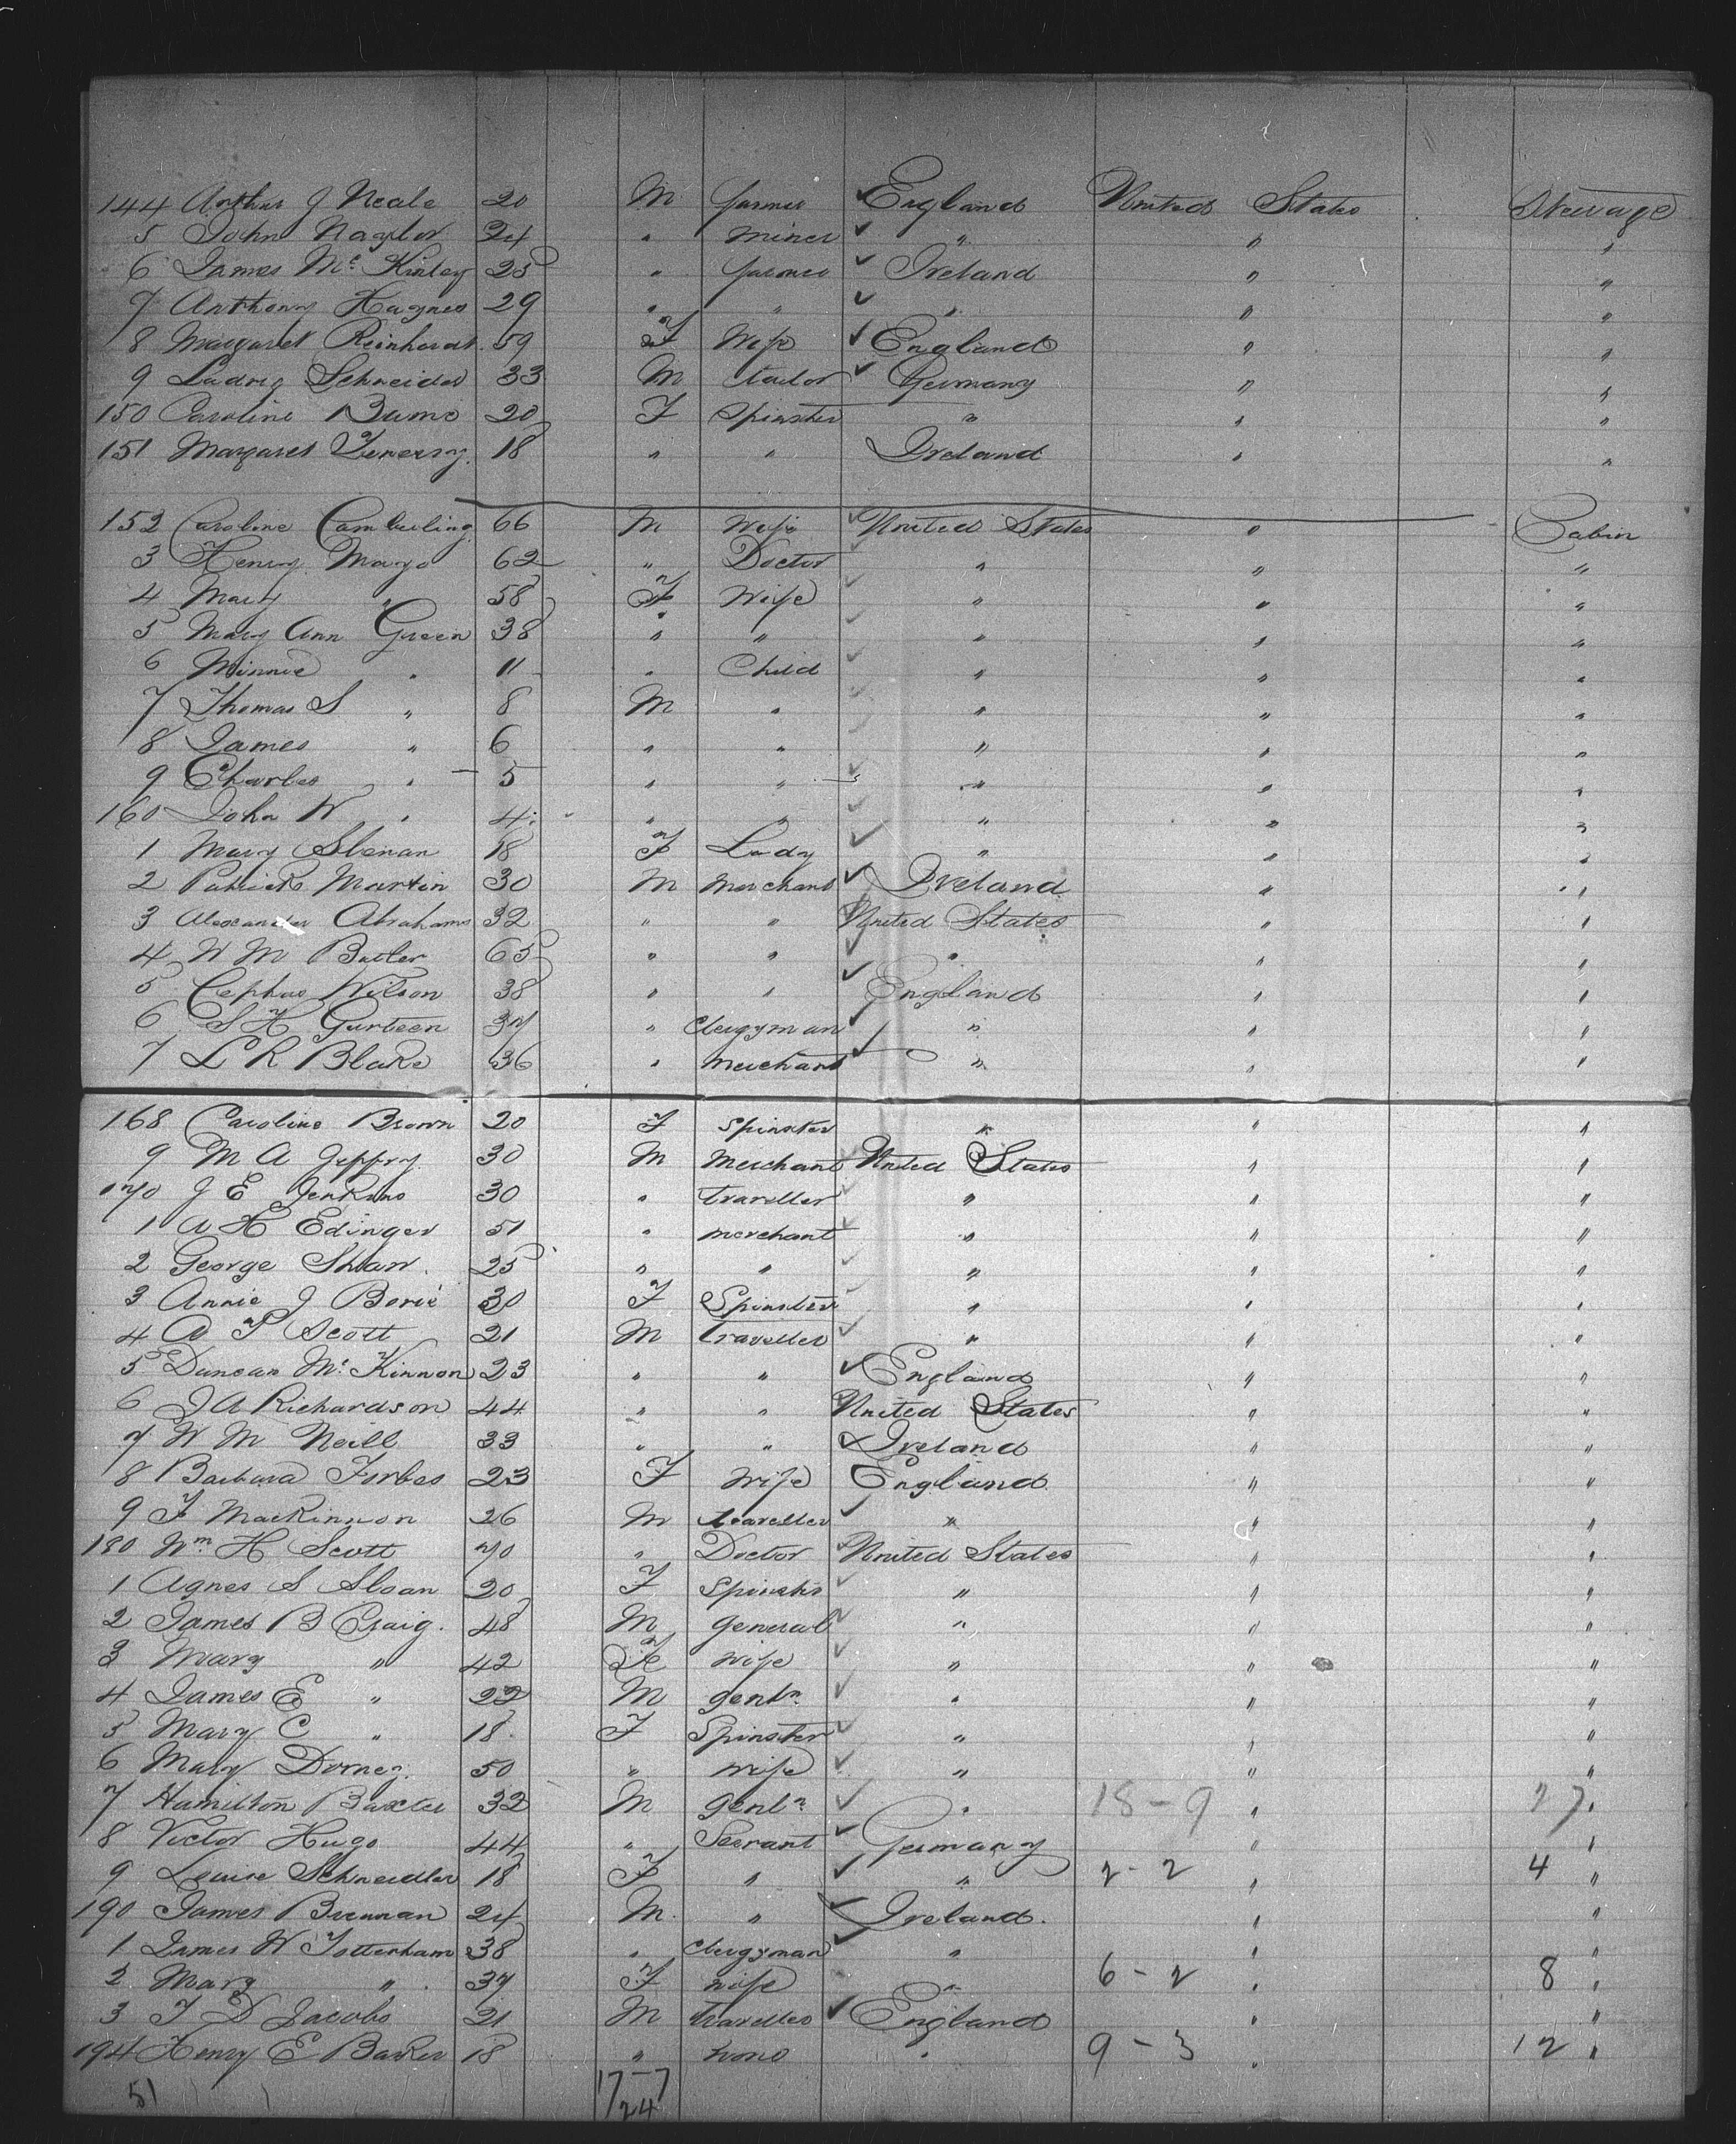 144 Arthur J Neale 20 M farmer England United States Steerage
5 John Naylor 24 " miner " " "
6 James Mc Kinley 25 " farmer Ireland " "
7 Anthony Haynes 29 " " " " "
8 Margaret Reinhardt 59 F Wife England " "
9 Ludwig Schneider 33 M tailor Germany " "
150 Caroline 20 F Spinster " " "
151 Margaret 18 " " Ireland " "
152 Caroline Cambuling 66 M Wife United States " Cabin
3 Henry Mayo 62 " Doctor " " "
4 Mary " 58 F Wife " " "
5 Mary Ann Green 38 " " " " "
6 Minnie " 11 " Child " " "
7 Thomas S " 8 M " " " "
8 James " 6 " " " " "
9 Charles " 5 " " " " "
160 John W " 4 " " " " "
1 Mary 18 F Lady " " "
2 Patrick Martin 30 M Merchant Ireland " "
3 Alexander Abrahams 32 " " United States " "
4 W M Butler 65 " " " " "
5 Cephas Wilson 38 " " England " "
6 S H Gurteen 37 " Clergyman " " "
7 L R Blake 36 " Merchant " " "
168 Caroline Brown 20 F Spinster " " "
9 M A Jeffry 30 M Merchant United States " "
170 J E Jenkins 30 " traveller " " "
1 A H Edinger 51 " merchant " " "
2 George Shaw 25 " " " " "
3 Annie J Borie 30 F Spinster " " "
4 A P Scott 21 M Traveller " " "
5 Duncan Mc Kinnon 23 " " England " "
6 J A Richardson 44 " " United States " "
7 W M Neill 33 " " Ireland " "
8 Barbara Forbes 23 F Wife England " "
9 F MacKinnon 26 M traveller " " "
180 Wm H Scott 70 " Doctor United States " "
1 Agnes S Sloan 20 F Spinster " " "
2 James B Craig 48 M General " " "
3 Mary " 42 F wife " " "
4 James E " 22 M gentn " " "
5 Mary C " 18 F Spinster " " "
6 Mary 50 " wife " " "
7 Hamilton Baxter 32 M gentn " 18-9 " 27 "
8 Victor Hugo 44 " Servant Germany " "
9 Louise Schneidler 18 F " " 2-2 " 4 "
190 James Brennan 24 M " Ireland " "
1 James W Totterham 38 " Clergyman " " "
2 Mary " 37 F wife " 6-2 " 8 "
3 T D Jacobs 21 M traveller England " "
194 Henry E Baker 18 " none " 9-3 " 12 "
51 17-7
24